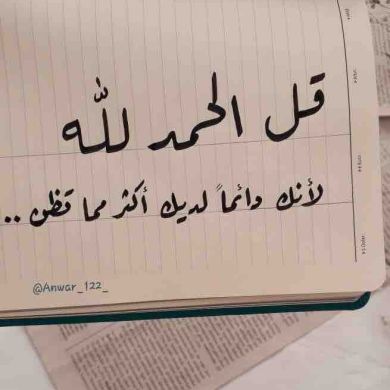 قل الحمد لله
لأنك دائماً لديك أكثر مما تظن ..
@Anwar_122_